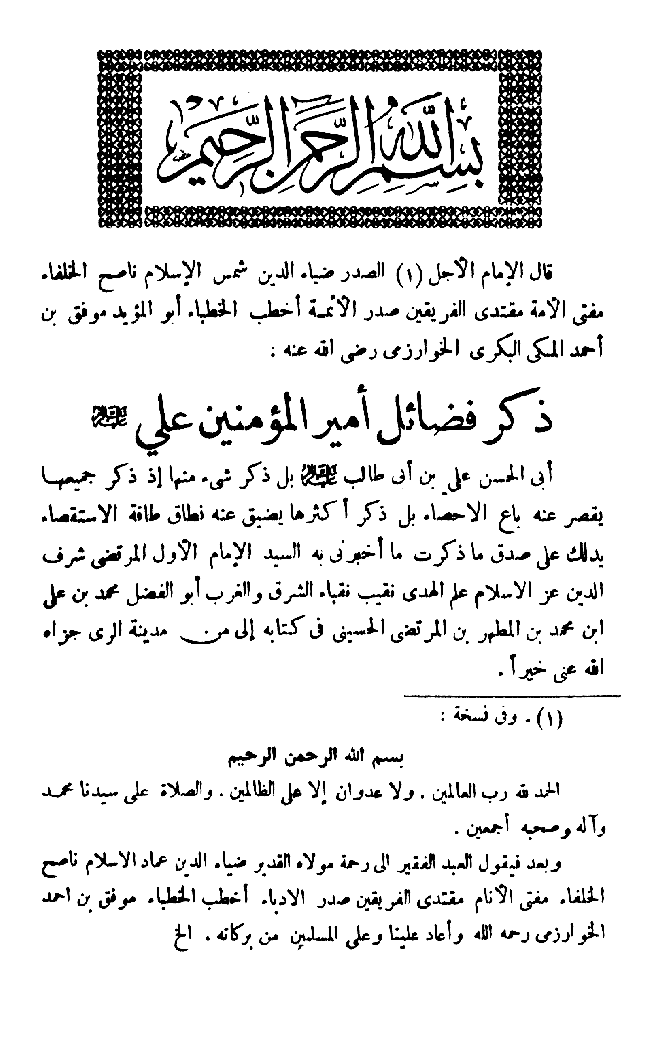 بسم الله الرحمن الرحيم
قال الإمام الأجل (١) الصدر ضياء الدين شمس الإسلام ناصح الخلفاء
مفتى الامة مقتدى الفريقين صدر الأئمة أخطب الخطباء أبو المؤيد موفق بن
أحمد المكى البكرى الخوارزمى رضى الله عنه :
ذكر فضائل أمير المؤمنين علي عليه السلام
أبى الحسن علي بن أبى طالب عليه السلام بل ذكر شىء منها إذ ذكر جميعها
يقصر عنه باع الاحصاء بل ذكر أكثرها يضيق عنه نطاق طاقة الاستقصاء
يدلك على صدق ما ذكرت ما أخبرنى به السيد الإمام الأول المرتضى شرف
الدين عز الاسلام علم الهدى نقيب نقباء الشرق والغرب أبو الفضل محمد بن على
ابن محمد بن المطهر بن المرتضى الحسينى فى كتابه إلى من مدينة الرى جزاه
الله عنى خيراً .
(١) . وفى نسخة :
بسم الله الرحمن الرحيم
الحمد لله رب العالمين . ولا عدوان إلا على الظالمين . والصلاة على سيدنا محمد
وآله وصحبه أجمعين .
وبعد فيقول العبد الفقير الى رحمة مولاه القدير ضياء الدين عماد الاسلام ناصح
الخلفاء مفتى الأنام مقتدى الفريقين صدر الادباء أخطب الخطباء موفق بن احمد
الخوارزمى رحمه الله وأعاد علينا وعلى المسلمين من بركاته . الخ